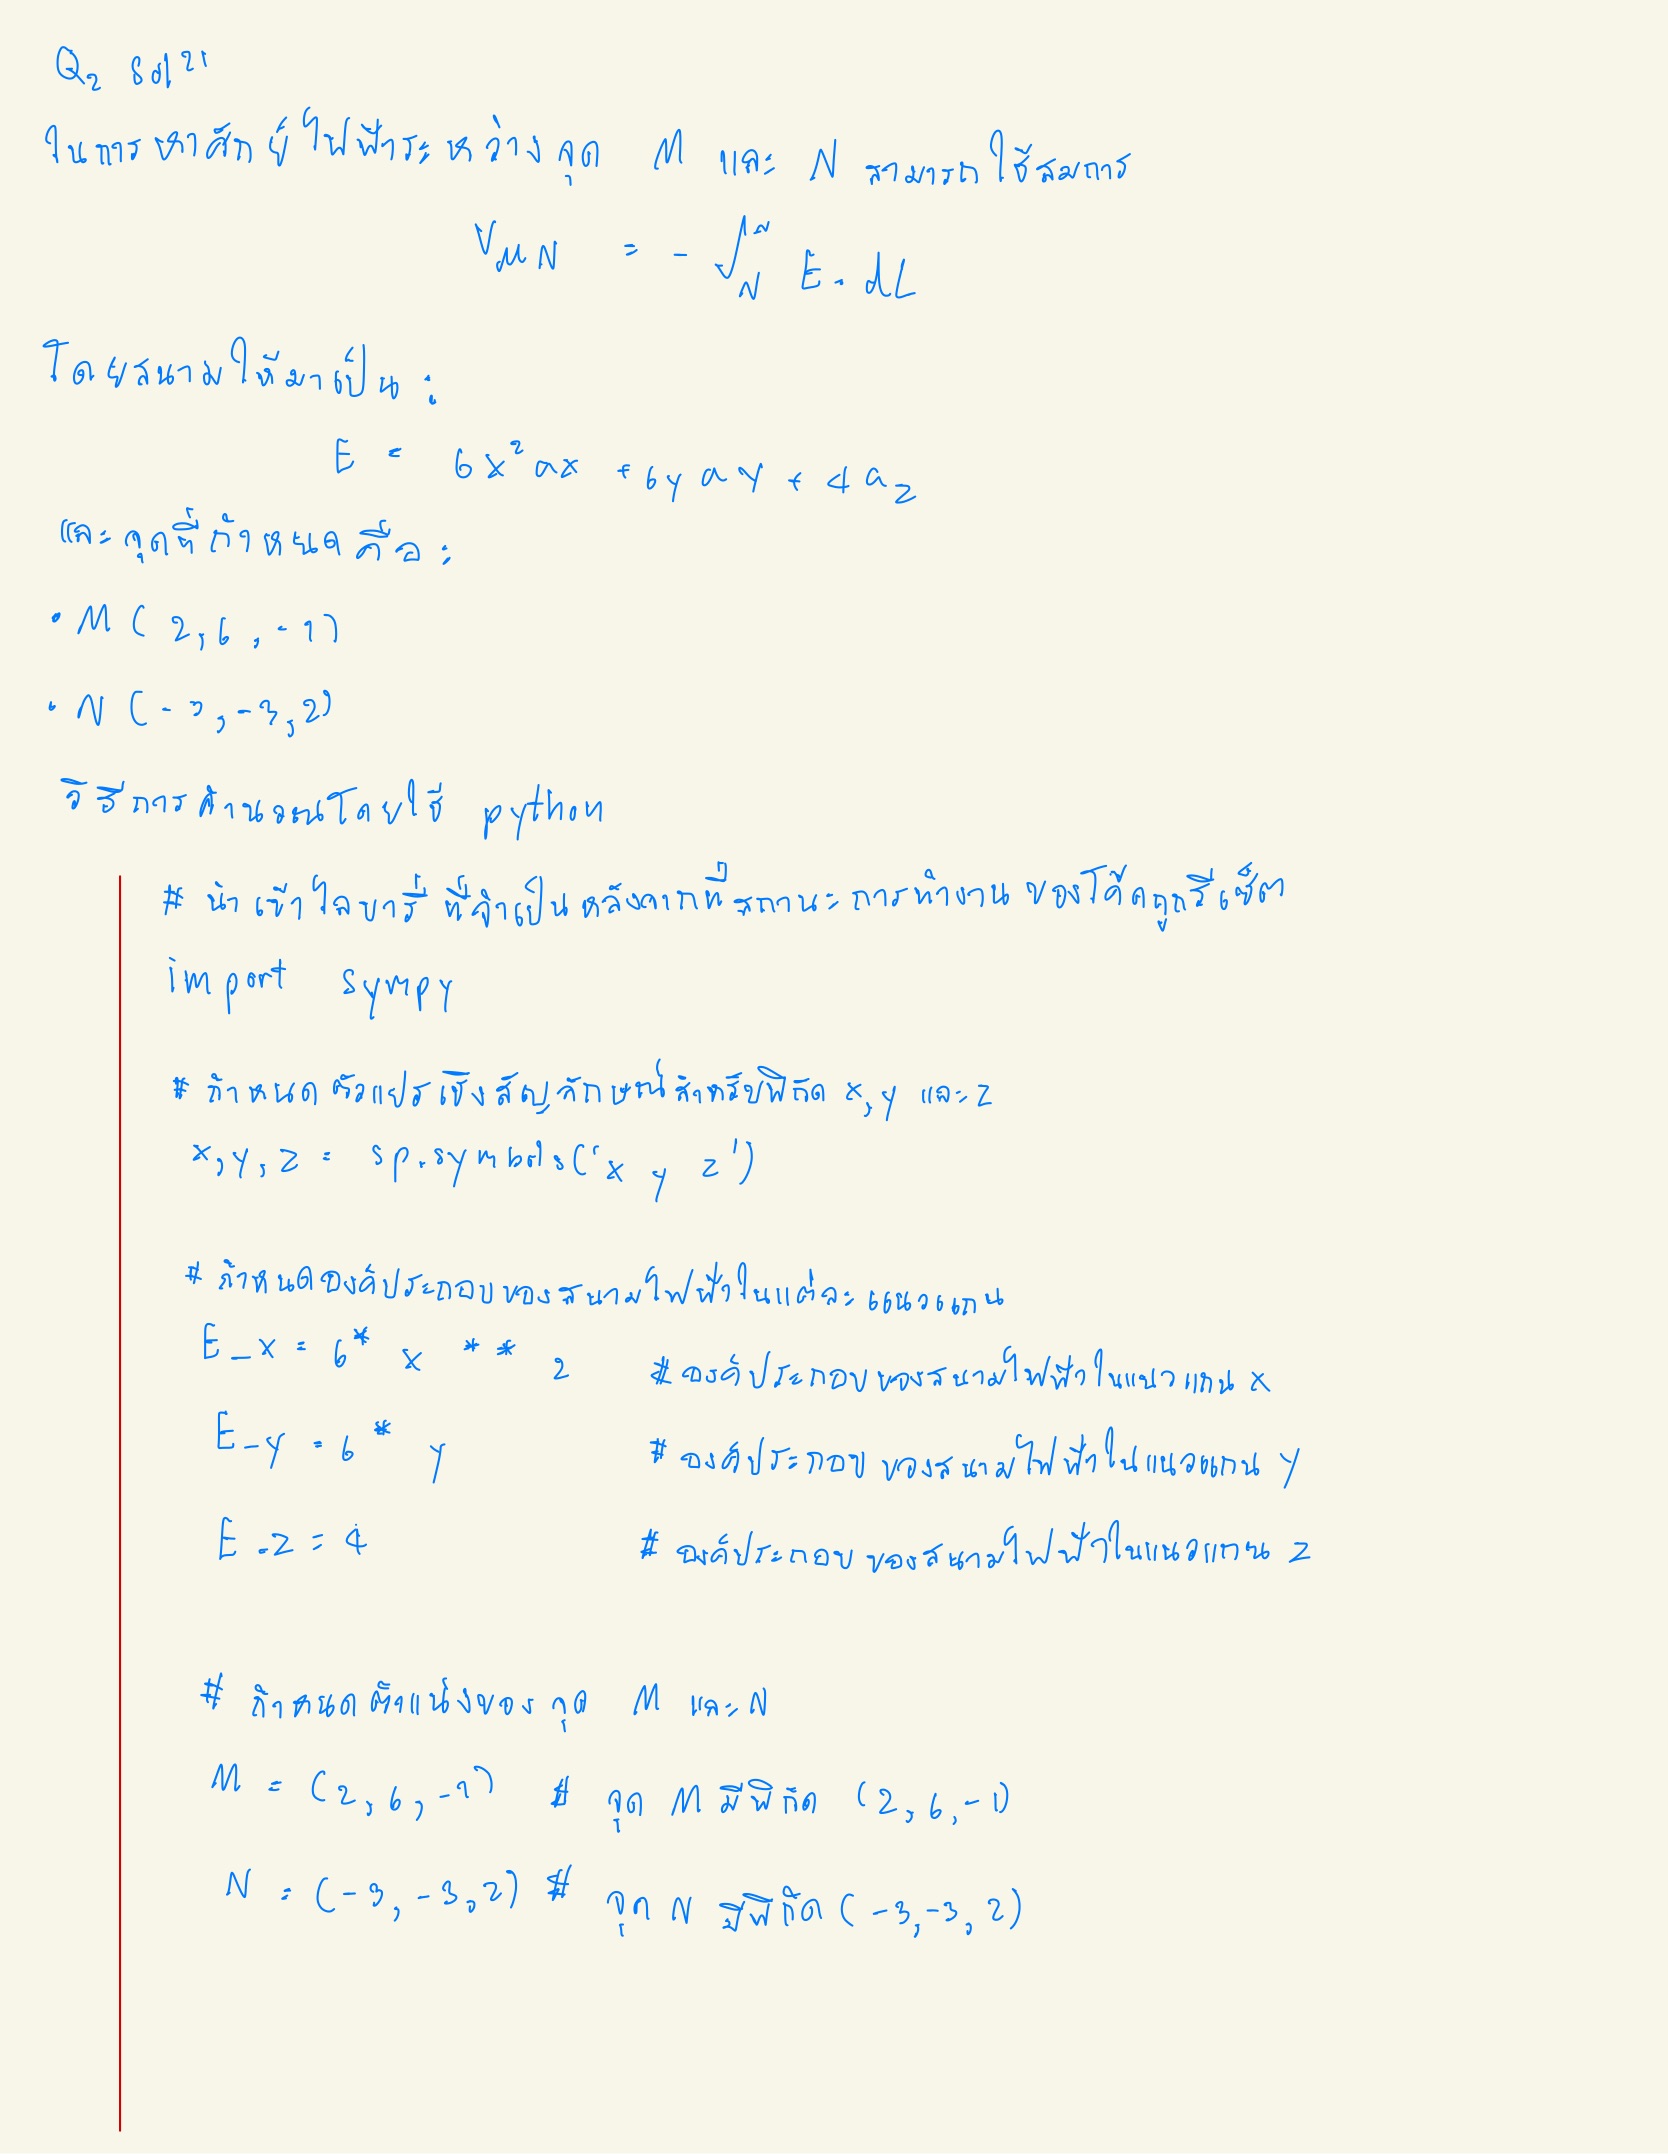 Q2 Sol 21
ในการหาศักย์ไฟฟ้าระหว่างจุด M และ N สามารถใช้สมการ
V_MN = - ∫_N^M E. dL
โดยสนามให้มาเป็น :
E = 6x² ax + 6y ay + 4 az
และจุดที่กำหนดคือ :
• M ( 2, 6, -1)
• N (-3, -3, 2)
วิธีการคำนวณโดยใช้ python
# นำเข้าไลบารี่ ที่จำเป็นหลังจากที่สถานะการทำงานของโค้ดถูกรีเซ็ต
import sympy
# กำหนดตัวแปรเชิงสัญลักษณ์สำหรับพิกัด x, y และ z
x, y, z = sp.symbols('x y z')
# กำหนดองค์ประกอบของสนามไฟฟ้าในแต่ละแนวแกน
E_x = 6* x ** 2 # องค์ประกอบของสนามไฟฟ้าในแนวแกน x
E_y = 6* y # องค์ประกอบของสนามไฟฟ้าในแนวแกน y
E_z = 4 # องค์ประกอบของสนามไฟฟ้าในแนวแกน z
# กำหนดตำแน่งของจุด M และ N
M = (2, 6, -1) # จุด M มีพิกัด (2, 6, -1)
N = (-3, -3, 2) # จุด N มีพิกัด (-3, -3, 2)